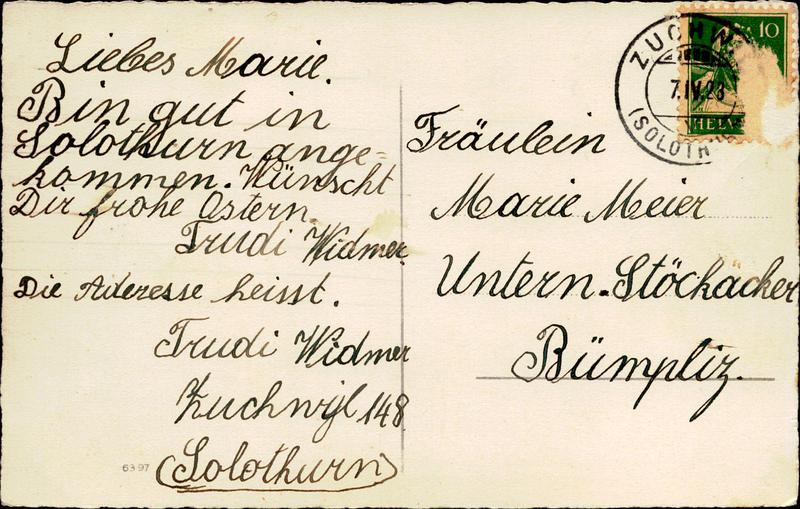 Liebes Marie.
Bin gut in
Solothurn ange-
kommen. Wünscht
Dir frohe Ostern.
Trudi Widmer
Die Aderesse heisst.
Trudi Widmer
Zuchwyl 148
(Solothurn)
6397
10
7.IV.23
HELV
(SOLOTH
Fräulein
Marie Meier
Untern-Stöckacker
Bümpliz.